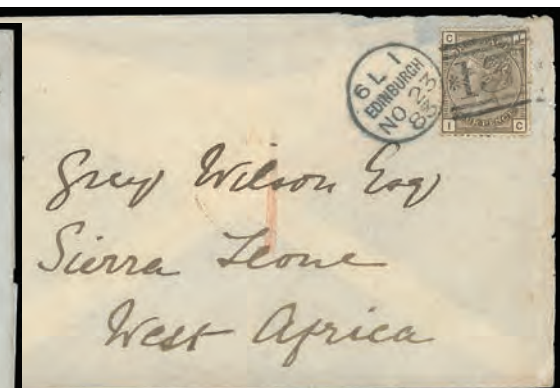 6 L 1
EDINBURGH
NO 23
83
C I
FOUR PENCE
I C
Grey Wilson Esq
Sierra Leone
West Africa